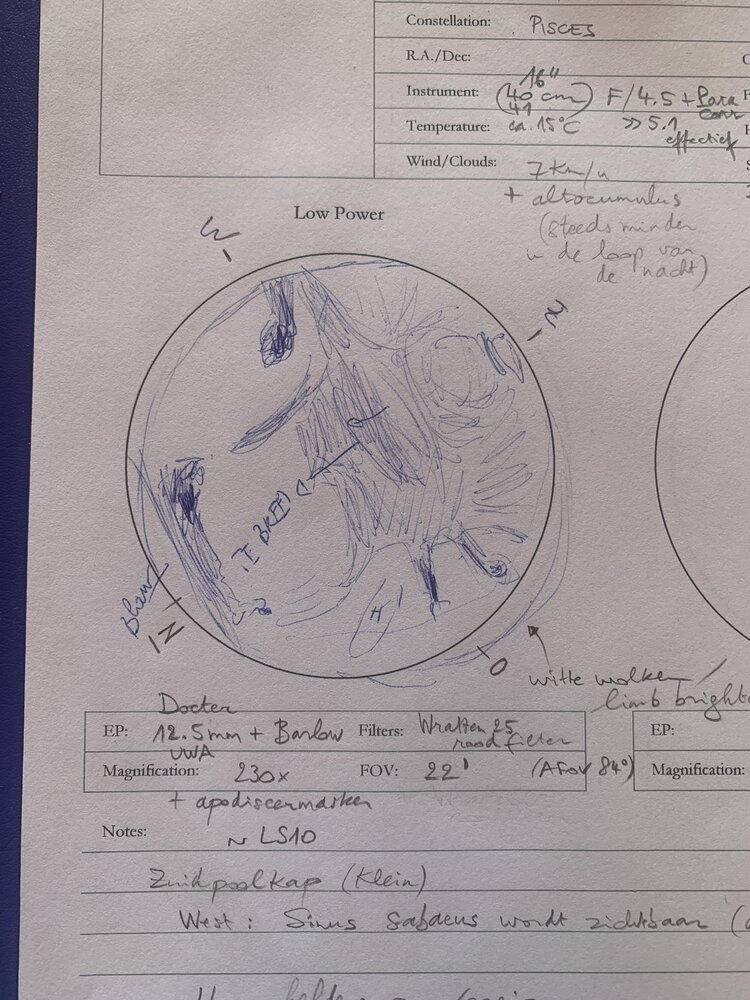 Constellation: PISCES
R.A./Dec:
16"
Instrument: (40 cm) F/4.5 + Para
41 corr
Temperature: ca. 15°C >> 5.1
effectief
Wind/Clouds: 7 km/u
+ altocumulus
(steeds minder
in de loop van
de nacht)
Low Power
W
Z
TE BREED
Blauw
N
H
O
witte wolken /
limb bright
Docter
EP: 12.5mm + Barlow Filters: Wratten 25
UWA rood filter
Magnification: 230x FOV: 22' (AFOV 84°)
+ apodiseermasker
EP:
Magnification:
Notes: ~ LS10
Zuidpoolkap (Klein)
West: Sinus Sabaeus wordt zichtbaar (